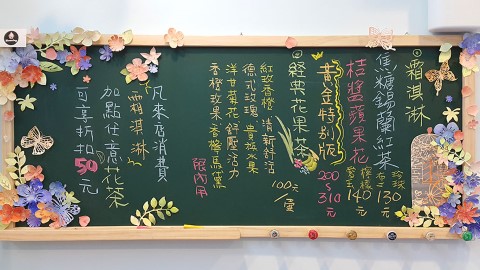 霜淇淋
焦糖錫蘭紅茶
布丁
130元
桔醬蘋果花
檸檬
愛玉
140元
黃金特別版
200~310元
經典花果茶
100元/壺
紅玫香橙 清新舒活
德式玫瑰 貴族水果
洋甘菊花 舒壓活力
香橙玫果 香檸馬黛
限內用
凡來店消費
霜淇淋
加點任意花茶
可享折扣50元